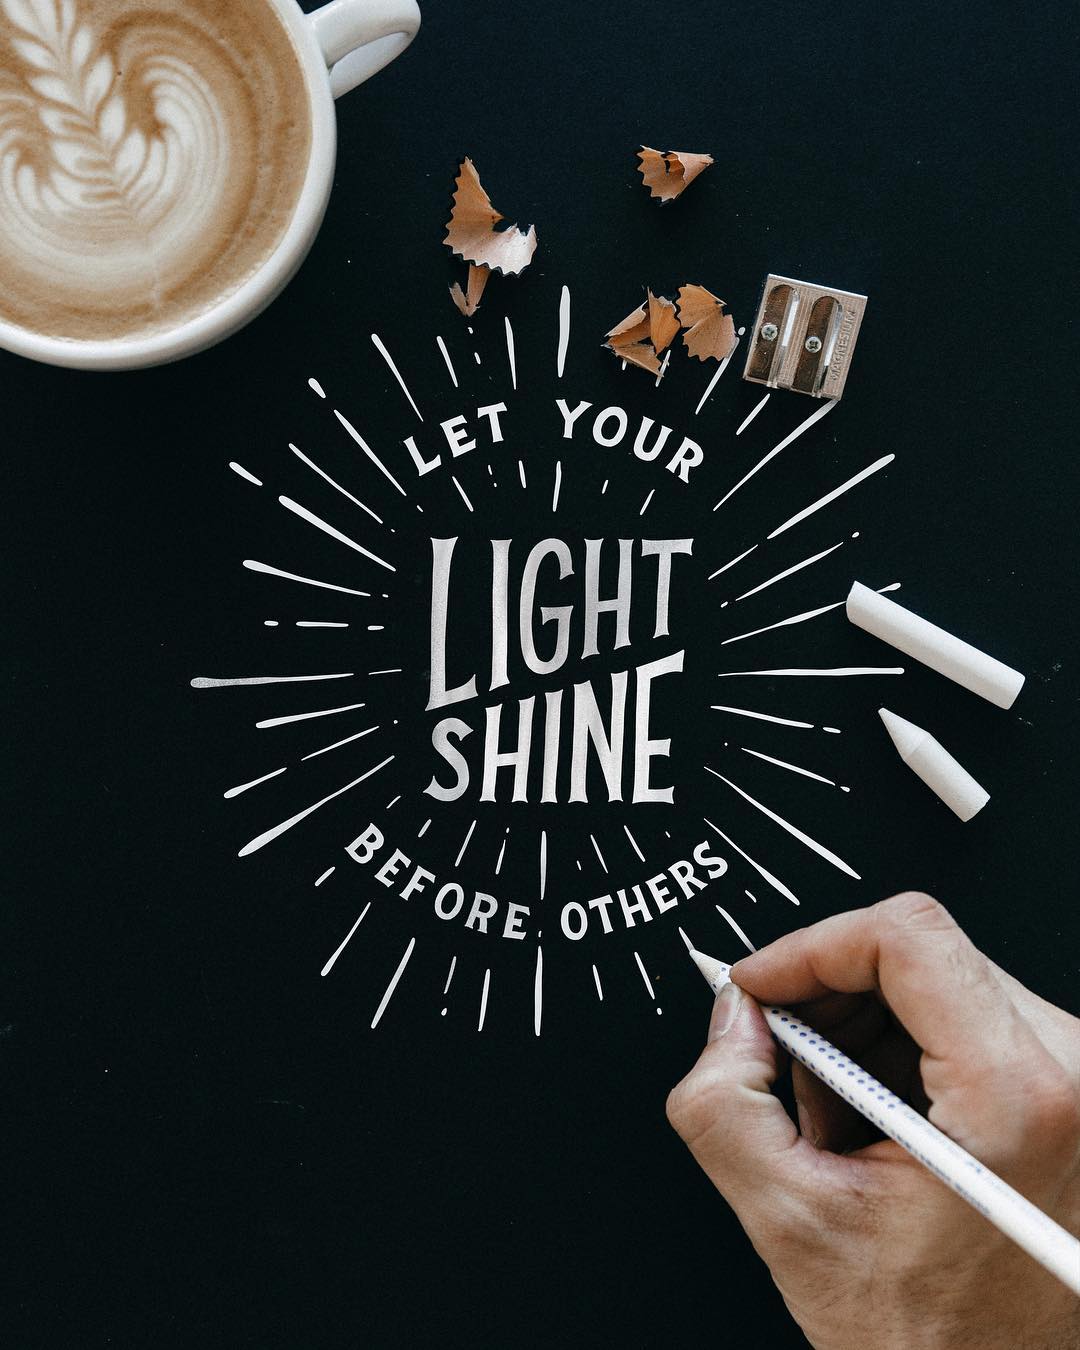 LET YOUR
LIGHT
SHINE
BEFORE OTHERS
MAGNESIUM